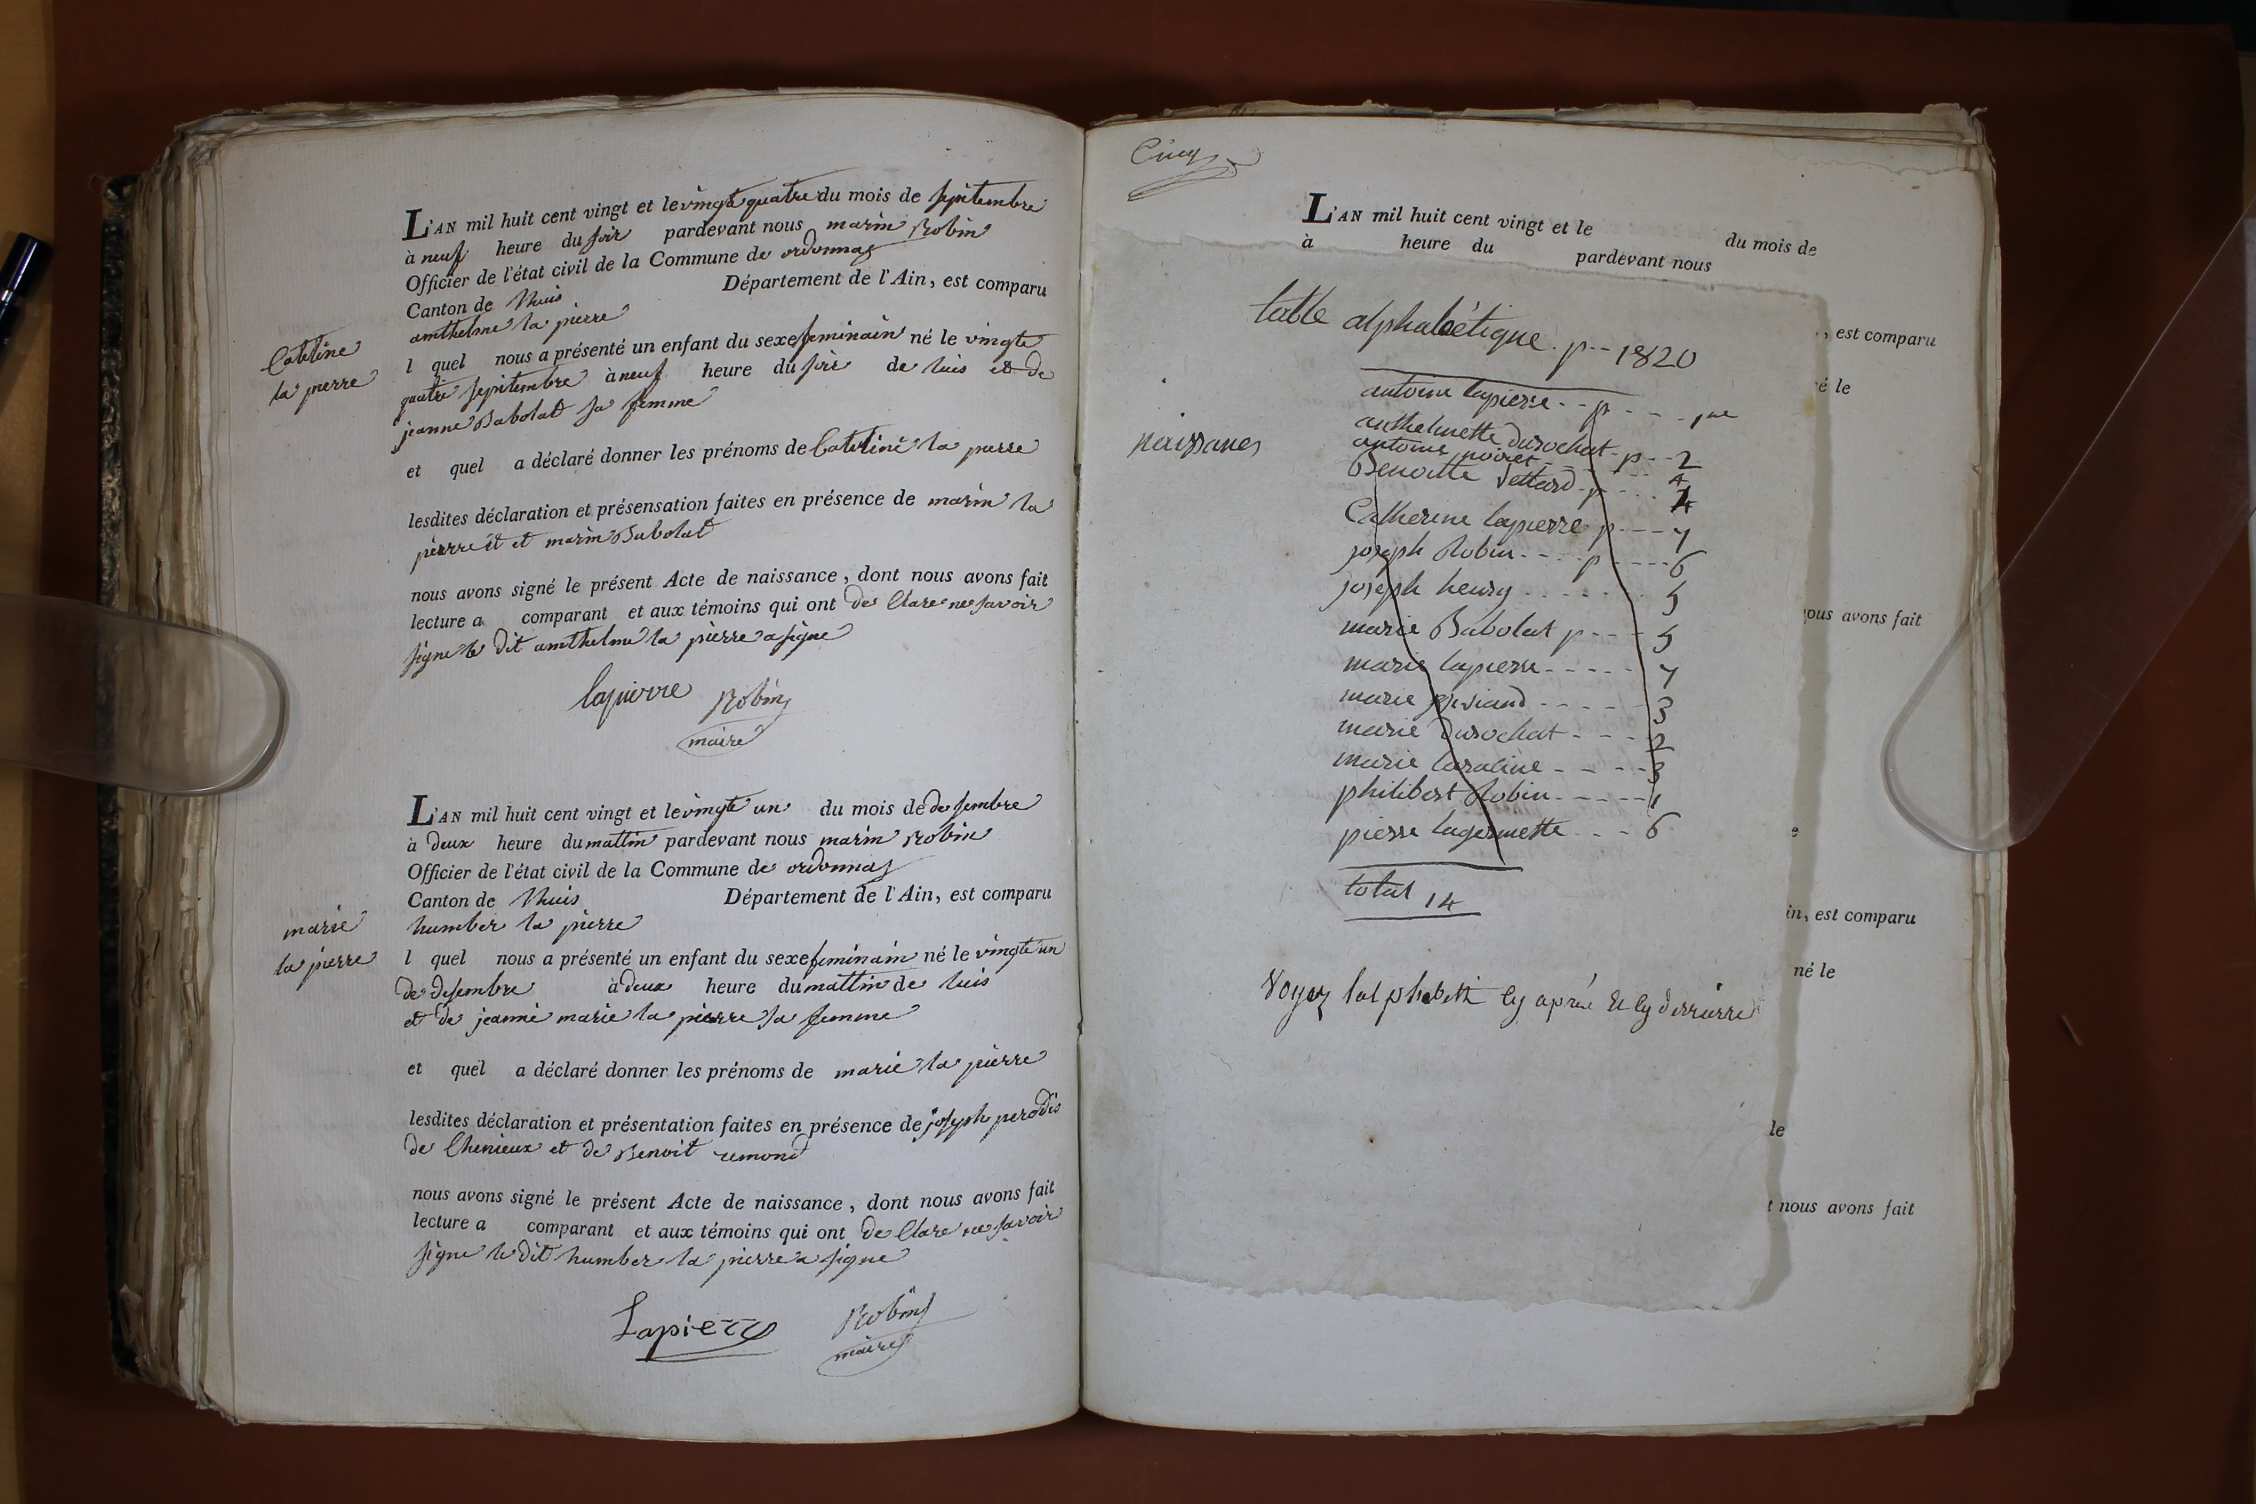 L'AN mil huit cent vingt et le vingt quatre du mois de septembre
à neuf heure du soir pardevant nous marin Robin
Officier de l'état civil de la Commune de ordonnas
Canton de lhuis Département de l'Ain, est comparu
amthelme la pierre
Catetine
la pierre
l quel nous a présenté un enfant du sexe feminain né le vingte
quatre septembre à neuf heure du soir de luis et de
jeanne Babolat sa femme
et quel a déclaré donner les prénoms de Catetine la pierre
lesdites déclaration et présensation faites en présence de marin la
pierre et marin Babolat
nous avons signé le présent Acte de naissance, dont nous avons fait
lecture a comparant et aux témoins qui ont de Clare ne savoir
signe le dit amthelme la pierre a signe
lapierre Robin
maire
L'AN mil huit cent vingt et le vingte un du mois de desembre
à deux heure du mattin pardevant nous marin Robin
Officier de l'état civil de la Commune de ordonnas
Canton de lhuis Département de l'Ain, est comparu
humber la pierre
marie
la pierre
l quel nous a présenté un enfant du sexe feminain né le vingte un
de desembre à deux heure du mattin de luis
et de jeanne marie la pierre sa femme
et quel a déclaré donner les prénoms de marie la pierre
lesdites déclaration et présentation faites en présence de joseph perodis
de Chenieux et de Benoit remond
nous avons signé le présent Acte de naissance, dont nous avons fait
lecture a comparant et aux témoins qui ont de Clare ne savoir
signe le dit humber la pierre a signe
Lapierre Robin
maire
Cinq
L'AN mil huit cent vingt et le du mois de
à heure du pardevant nous
, est comparu
é le
nous avons fait
e
in, est comparu
né le
le
t nous avons fait
table alphabétique p-- 1820
naissances
antoine lapierre -- p --- 1re
anthelmette durochat - p -- 2
antoine poiret --- 4
Benoitte Vettard - p --- 4
Catherine lapierre p --- 7
joseph Robin ---- p ---- 6
joseph henry ------ 5
marie Babolat p --- 5
marie lapierre ----- 7
marie ------ 3
marie durochat ---- 2
marie ----- 3
philibert Robin ----- 1
pierre lagermette --- 6
total 14
Voyez lalphabett cy aprés et cy derrierre